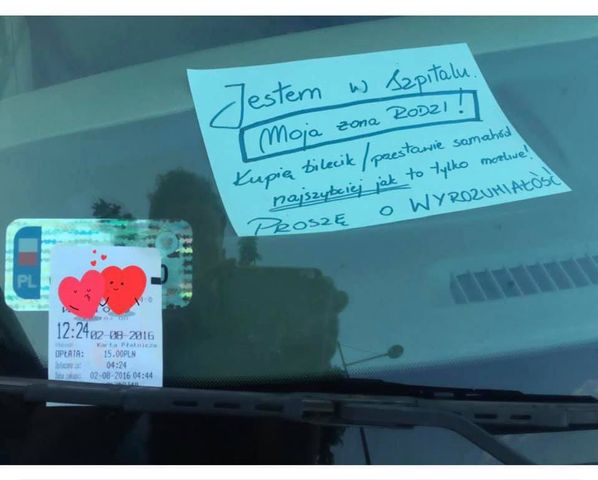 Jestem w Szpitalu.
Moja żona RODZI!
Kupię bilecik/przestawię samochód
najszybciej jak to tylko możliwe!
PROSZĘ o WYROZUMIAŁOŚĆ
PL
12:24 02-08-2016
Karta Płatnicza
OPŁATA: 15.00PLN
04:24
02-08-2016 04:44